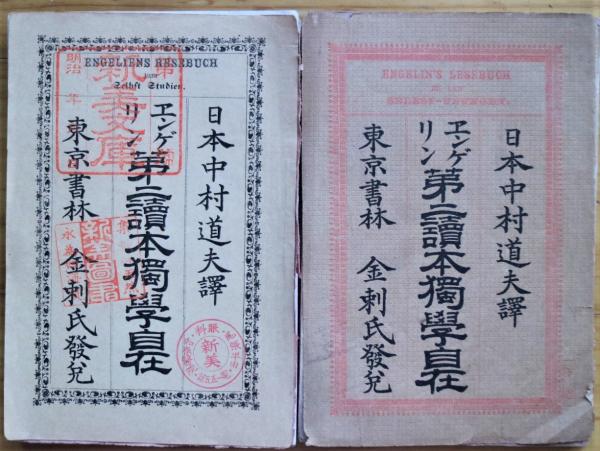 ENGELIENS RESEBUCH
ZUM
Selbst Studien.
日本中村道夫譯
ヱンゲリン
第二讀本獨學自在
東京書林 金刺氏發兌
明治 年
新美文庫
新美圖書
眼科
新美
ENGELIN'S LESEBUCH
日本中村道夫譯
ヱンゲリン
第二讀本獨學自在
東京書林 金刺氏發兌